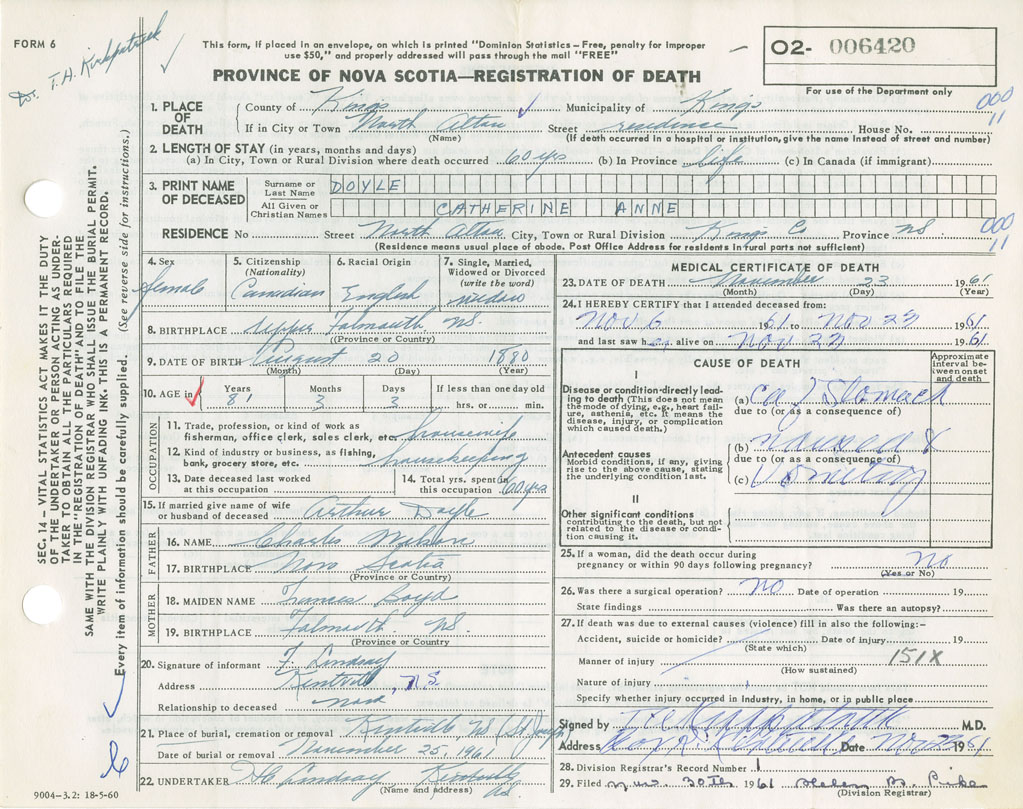 FORM 6
Dr. T. A. Kirkpatrick
This form, if placed in an envelope, on which is printed "Dominion Statistics – Free, penalty for improper
use $50," and properly addressed will pass through the mail "FREE"
PROVINCE OF NOVA SCOTIA—REGISTRATION OF DEATH
O2- 006420
For use of the Department only
000
11
SEC. 14 – VITAL STATISTICS ACT MAKES IT THE DUTY
OF THE UNDERTAKER OR PERSON ACTING AS UNDER-
TAKER TO OBTAIN ALL THE PARTICULARS REQUIRED
IN THE "REGISTRATION OF DEATH" AND TO FILE THE
SAME WITH THE DIVISION REGISTRAR WHO SHALL ISSUE THE BURIAL PERMIT.
WRITE PLAINLY WITH UNFADING INK. THIS IS A PERMANENT RECORD.
Every item of information should be carefully supplied. (See reverse side for instructions.)
1. PLACE OF DEATH County of Kings Municipality of Kings
If in City or Town North Alton Street residence House No.
(Name) (If death occurred in a hospital or institution, give the name instead of street and number)
2. LENGTH OF STAY (in years, months and days)
(a) In City, Town or Rural Division where death occurred 60 yrs (b) In Province life (c) In Canada (if immigrant)
3. PRINT NAME OF DECEASED Surname or Last Name DOYLE
All Given or Christian Names CATHERINE ANNE
RESIDENCE No Street North Alton City, Town or Rural Division Kings Co Province NS
000
11
(Residence means usual place of abode. Post Office Address for residents in rural parts not sufficient)
4. Sex female
5. Citizenship (Nationality) Canadian
6. Racial Origin English
7. Single, Married, Widowed or Divorced (write the word) widow
8. BIRTHPLACE Upper Falmouth NS.
(Province or Country)
9. DATE OF BIRTH August 20 1880
(Month) (Day) (Year)
10. AGE in Years 81 Months 3 Days 3 If less than one day old hrs. or min.
OCCUPATION
11. Trade, profession, or kind of work as
fisherman, office clerk, sales clerk, etc. housewife
12. Kind of industry or business, as fishing,
bank, grocery store, etc. housekeeping
13. Date deceased last worked at this occupation
14. Total yrs. spent in this occupation 60 yrs
15. If married give name of wife
or husband of deceased Arthur Doyle
FATHER
16. NAME Charles Watson
17. BIRTHPLACE Nova Scotia
(Province or Country)
MOTHER
18. MAIDEN NAME Frances Boyd
19. BIRTHPLACE Falmouth NS.
(Province or Country
20. Signature of informant F. Lindsay
Address Kentville, N.S.
Relationship to deceased none
21. Place of burial, cremation or removal Kentville NS (St Joseph
Date of burial or removal November 25, 1961
22. UNDERTAKER Lindsay Kentville
(Name and address) NS.
9004-3.2: 18-5-60
MEDICAL CERTIFICATE OF DEATH
23. DATE OF DEATH November 23 1961
(Month) (Day) (Year)
24. I HEREBY CERTIFY that I attended deceased from:
Nov 6 1961 to Nov 23 1961
and last saw her alive on Nov 22 1961
CAUSE OF DEATH
Approximate interval between onset and death
I
Disease or condition directly lead-
ing to death (This does not mean
the mode of dying, e.g., heart fail-
ure, asthenia, etc. It means the
disease, injury, or complication
which caused death.)
(a) Ca of Stomach
due to (or as a consequence of)
Antecedent causes
Morbid conditions, if any, giving
rise to the above cause, stating
the underlying condition last.
(b) nausea &
due to (or as a consequence of)
(c) Vomiting
II
Other significant conditions
contributing to the death, but not
related to the disease or condi-
tion causing it.
25. If a woman, did the death occur during
pregnancy or within 90 days following pregnancy? No
(Yes or No)
26. Was there a surgical operation? NO Date of operation 19
State findings Was there an autopsy?
27. If death was due to external causes (violence) fill in also the following:–
Accident, suicide or homicide? Date of injury 19
(State which)
151X
Manner of injury
(How sustained)
Nature of injury
Specify whether injury occurred in Industry, in home, or in public place
Signed by T A Kirkpatrick M.D.
Address Kentville Date Nov 23 1961
28. Division Registrar's Record Number 1
29. Filed Nov. 30th 1961 Helen B. Pike
(Division Registrar)